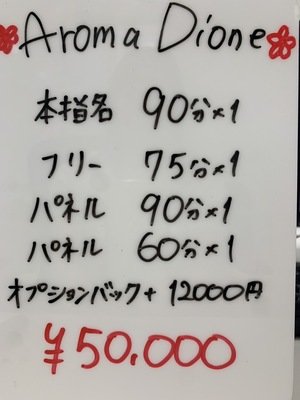 Aroma Dione
本指名 90分×1
フリー 75分×1
パネル 90分×1
パネル 60分×1
オプションバック+ 12000円
¥50.000